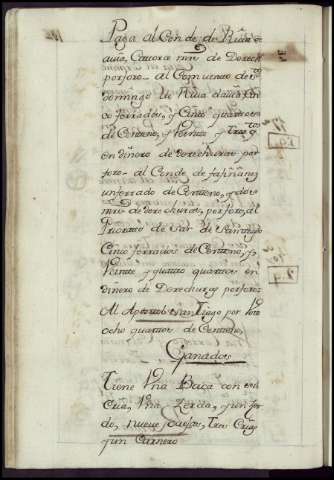 Paga al Conde de Riva
avia, Catorce mrs de Derech
por foro al Combento de Sto
Domingo de Riva davia sin
co ferrados, y Cinco quartos
de Centeno, y Veinte y tres qtos
en dinero de derechuras por
foro al Conde de
un ferrado de Centeno, y dos
mrs de derechuras, por foro, al
Priorato de Sar de Santiago
Cinco ferrados de Centeno, y
Veinte y quatro quartos en
dinero de Derechuras por foro
Al Apostol Santiago por Voto
ocho quartos de Centeno
Ganados
Tiene Vna Baca con su
Cria, Vna Zerda, y un Zer
do, nueve obejas, tres Crias
y un Carnero